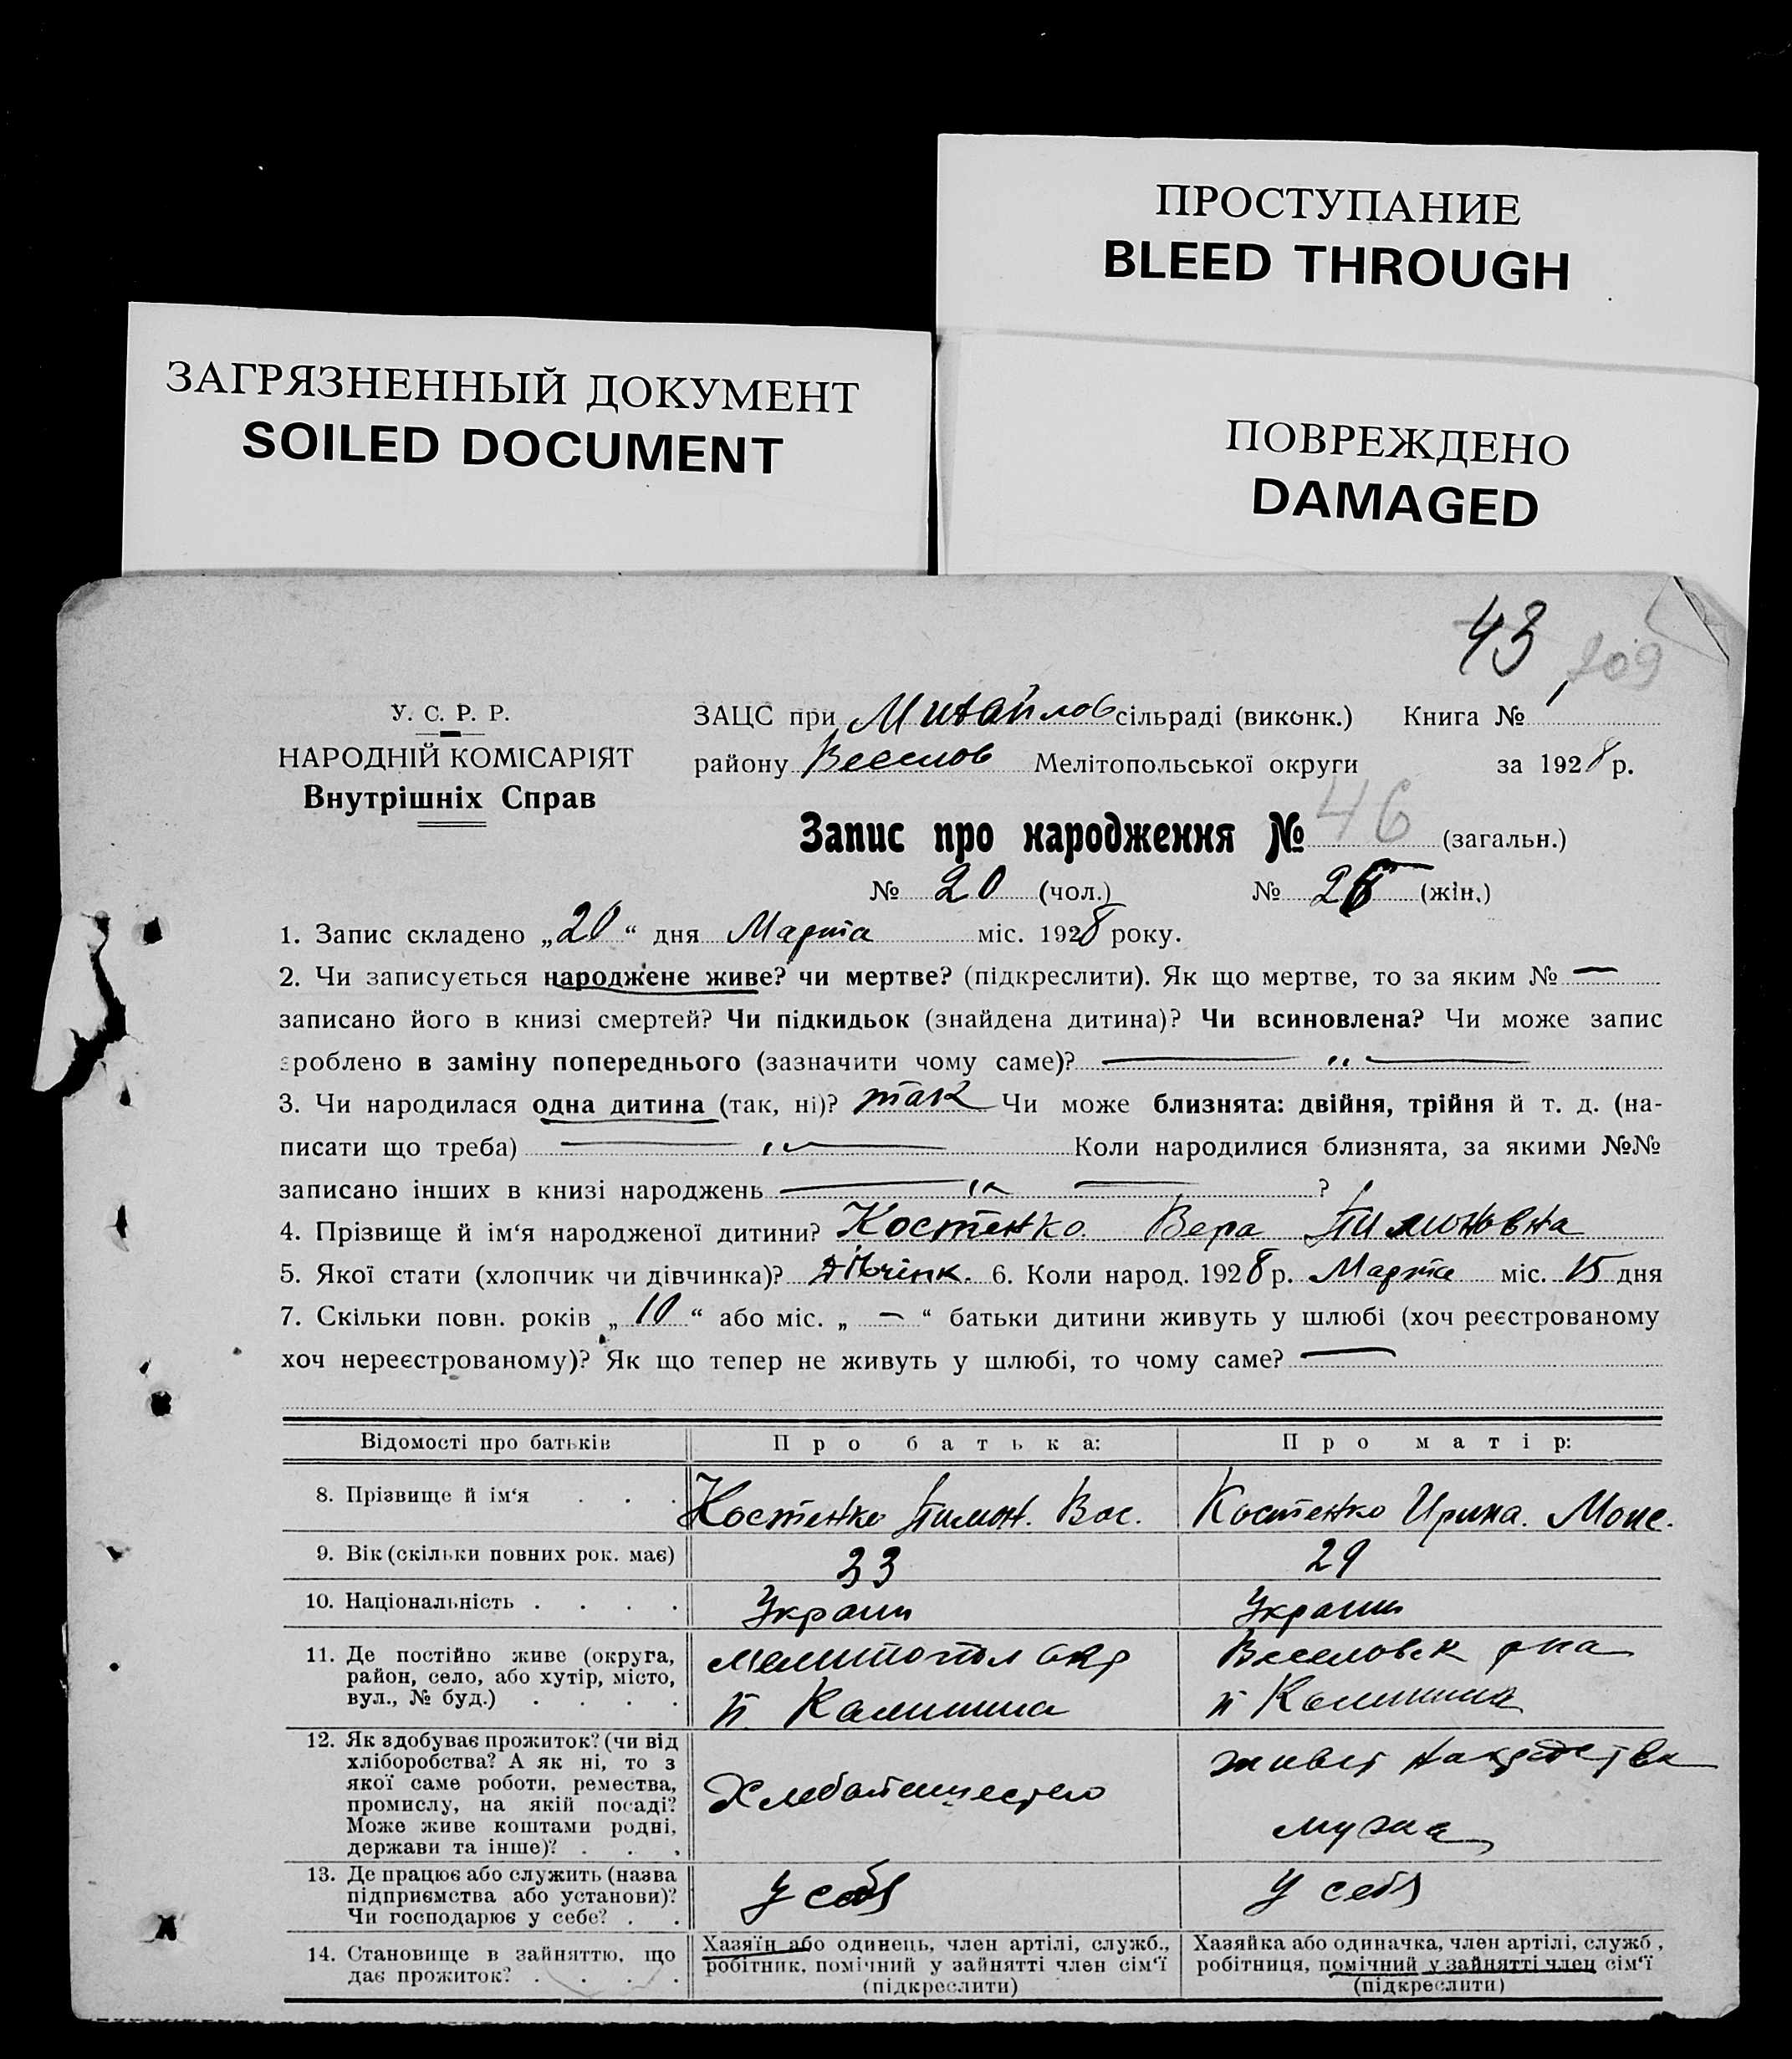 ПРОСТУПАНИЕ
BLEED THROUGH
ЗАГРЯЗНЕННЫЙ ДОКУМЕНТ
SOILED DOCUMENT
ПОВРЕЖДЕНО
DAMAGED
43
209
У. С. Р. Р.
НАРОДНІЙ КОМІСАРІЯТ
Внутрішніх Справ
ЗАЦС при Михайлов сільраді (виконк.) Книга № 1
району Веселов Мелітопольської округи за 1928 р.
Запис про народження № 46 (загальн.)
№ 20 (чол.) № 26 (жін.)
1. Запис складено „20“ дня Марта міс. 1928 року.
2. Чи записується народжене живе? чи мертве? (підкреслити). Як що мертве, то за яким № —
записано його в книзі смертей? Чи підкидьок (знайдена дитина)? Чи всиновлена? Чи може запис
зроблено в заміну попереднього (зазначити чому саме)? — „ —
3. Чи народилася одна дитина (так, ні)? так Чи може близнята: двійня, трійня й т. д. (на-
писати що треба) — „ — Коли народилися близнята, за якими №№
записано інших в книзі народжень — „ — ?
4. Прізвище й ім‘я народженої дитини? Костенко Вера Тимоновна
5. Якої стати (хлопчик чи дівчинка)? Дівчінк. 6. Коли народ. 1928 р. Марта міс. 15 дня
7. Скільки повн. років „10“ або міс. „—“ батьки дитини живуть у шлюбі (хоч реєстрованому
хоч нереєстрованому)? Як що тепер не живуть у шлюбі, то чому саме? —
Відомості про батьків Про батька: Про матір:
8. Прізвище й ім‘я . . . Костенко Тимон. Вас. Костенко Ирина. Моис.
9. Вік (скільки повних рок. має) 33 29
10. Національність . . . . Украин Украин
11. Де постійно живе (округа,
район, село, або хутір, місто,
вул., № буд.) . . . .
Мелитопол окр
п. Калинина
Веселовск р-на
п Калинина
12. Як здобуває прожиток? (чи від
хліборобства? А як ні, то з
якої саме роботи, ремества,
промислу, на якій посаді?
Може живе коштами родні,
держави та інше)? . . .
Хлебопашество
живет на средства
мужа
13. Де працює або служить (назва
підприємства або установи)?
Чи господарює у себе? . .
У себя
У себя
14. Становище в зайняттю, що
дає прожиток? . . . .
Хазяїн або одинець, член артілі, служб.,
робітник, помічний у зайнятті член сім‘ї
(підкреслити)
Хазяйка або одиначка, член артілі, служб.,
робітниця, помічний у зайнятті член сім‘ї
(підкреслити)